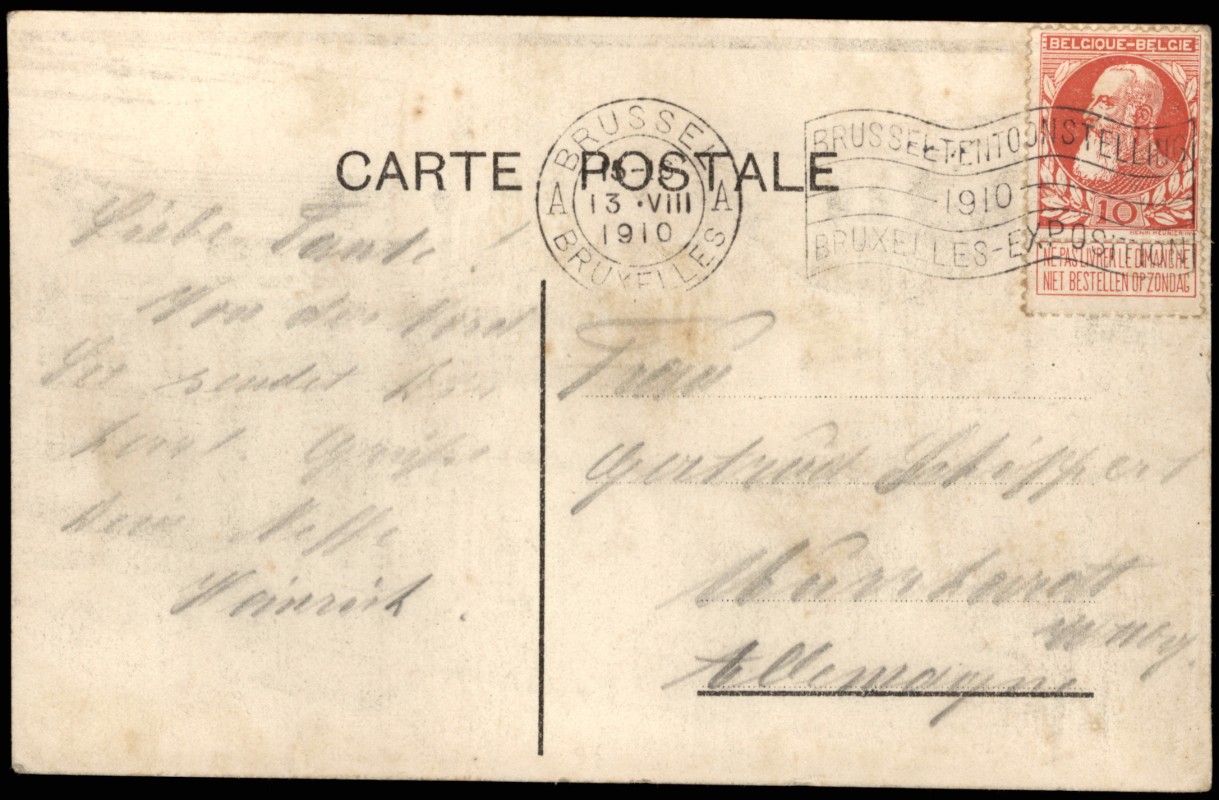 BELGIQUE-BELGIE
10
NE PAS LIVRER LE DIMANCHE
NIET BESTELLEN OP ZONDAG
BRUSSEL-TENTOONSTELLING
1910
BRUXELLES-EXPOSITION
BRUSSEL
13 ·VIII
1910
A A
BRUXELLES
CARTE POSTALE
Liebe Tante!
Von der Nord
See sendet Dir
herzl. Grüße
Dein Neffe
Heinrich
Frau
Gertrud Schippert
Murrhardt
Allemagne